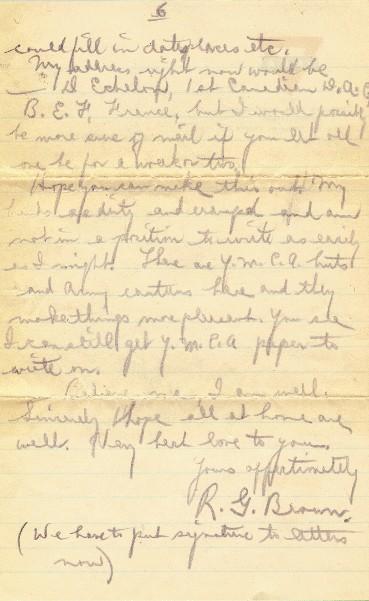 6
could fill in dates places etc.
My address right now would be
D Echelon, 1st Canadian
B. E. F, France, but I would possibly
be more sure of mail if you let old
one be for a week or two.
Hope you can make this out. My
are dirty and cramped and am
not in a position to write as easily
as I might. There are Y. M. C. A. huts
and Army canteens here and they
make things more pleasant. You see
I can still get Y. M. C. A paper to
write on.
Believe me, I am well.
Sincerely I hope all at home are
well. Very best love to yours
Yours affectionately
R. G. Brown.
(We have to put signature to letters
now)